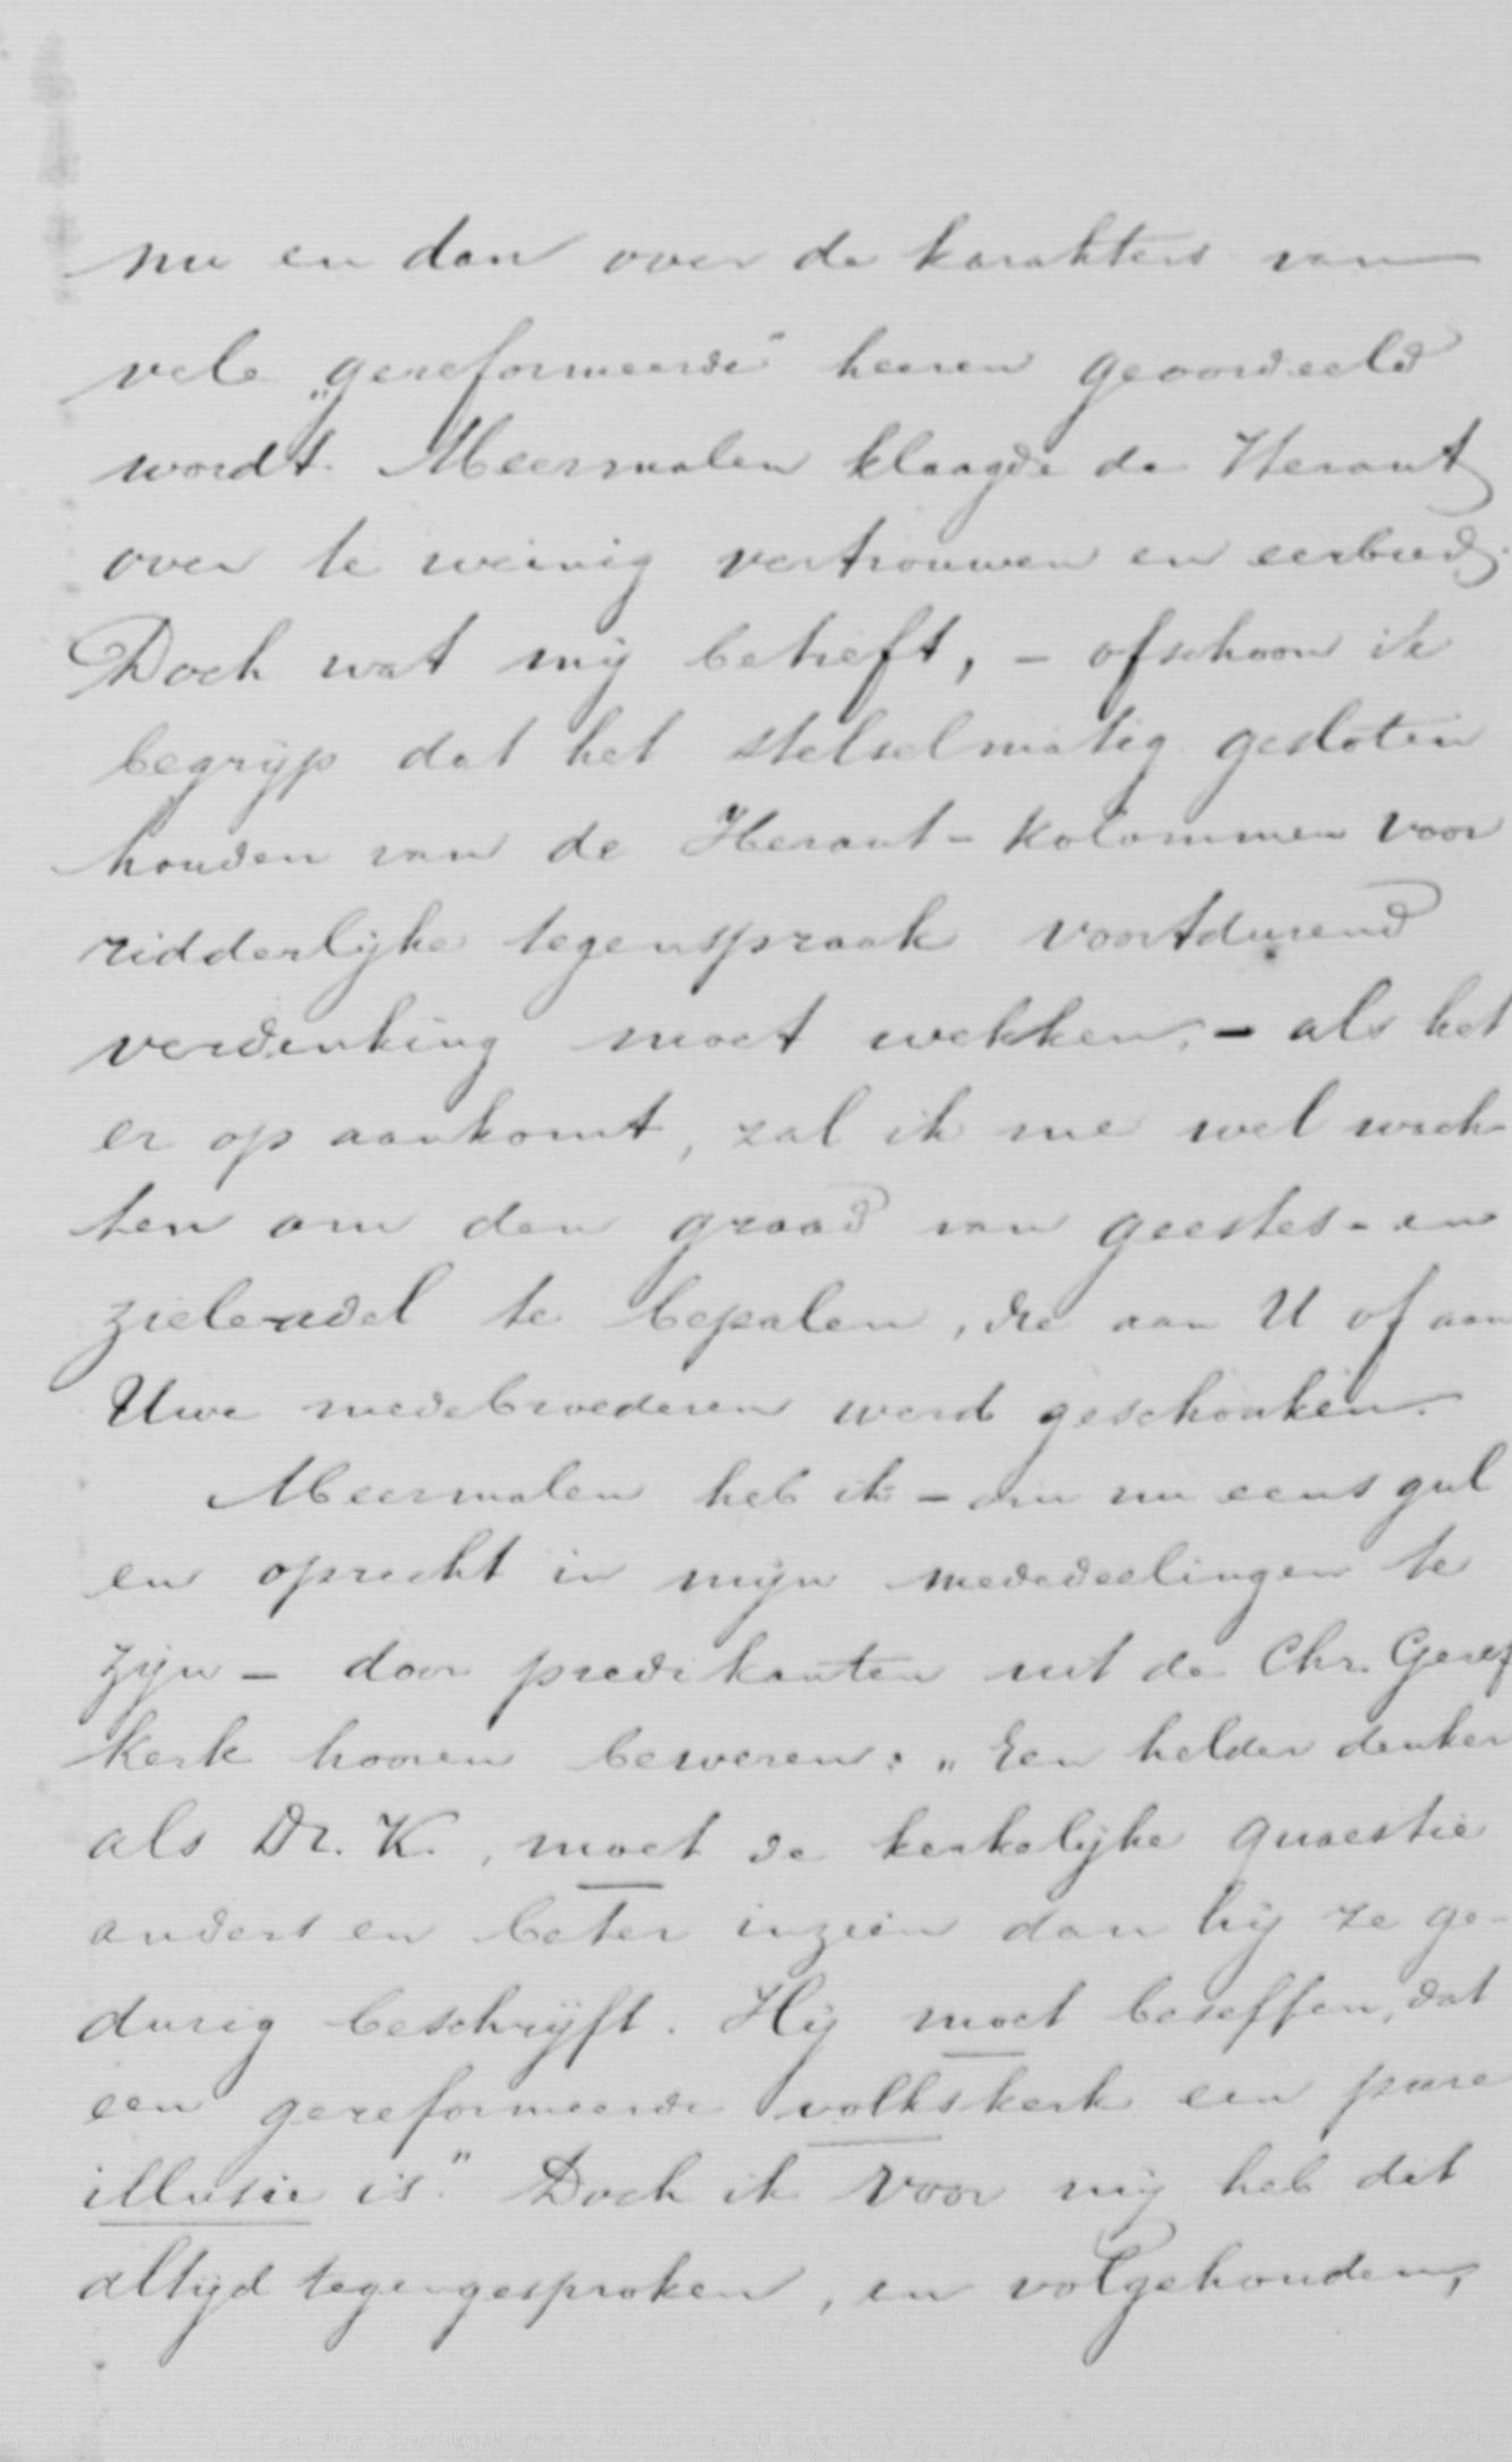 nu en dan over de karakters van
vele „gereformeerde” heeren geoordeeld
wordt. Meermalen klaagde de Heraut
over te weinig vertrouwen en eerbied.
Doch wat mij betreft, – ofschoon ik
begrijp dat het stelselmatig gesloten
houden van de Heraut-kolommen voor
ridderlijke tegenspraak voortdurend
verdenking moet wekken, – als het
er op aankomt, zal ik me wel wach-
ten om den graad van geestes- en
zieleadel te bepalen, die aan U of aan
Uwe medebroederen werd geschonken.
Meermalen heb ik – om nu eens gul
en oprecht in mijn mededeelingen te
zijn – door predikanten uit de Chr. Geref
Kerk hooren beweren: „Een helder denker
als Dr. K., moet de kerkelijke quaestie
anders en beter inzien dan hij ze ge-
durig beschrijft. Hij moet beseffen, dat
een gereformeerde volkskerk een pure
illusie is.” Doch ik voor mij heb dat
altijd tegengesproken, en volgehouden,